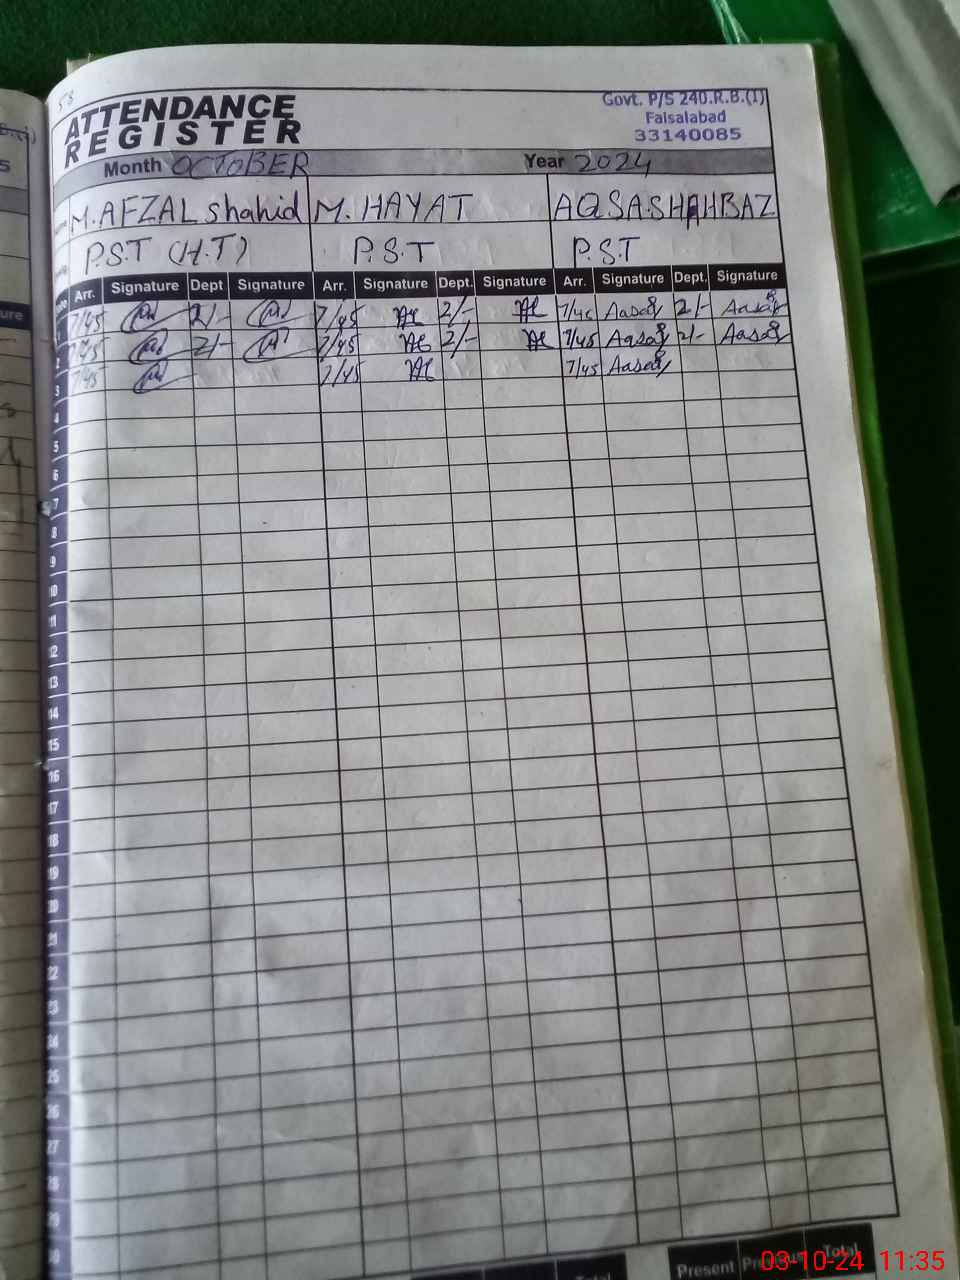 58
ATTENDANCE
REGISTER
Govt. P/S 240.R.B.(1)
Faisalabad
33140085
Month OCTOBER Year 2024
M. AFZAL Shahid M. HAYAT AQSA SHAHBAZ
P.S.T (H.T) P.S.T P.S.T
Arr. Signature Dept Signature Arr. Signature Dept. Signature Arr. Signature Dept. Signature
1 7/45 2/- 7/45 2/- 7/45 2/-
2 7/45 2/- 7/45 2/- 7/45 2/-
3 7/45 7/45 7/45
4
5
6
7
8
9
10
11
12
13
14
15
16
17
18
19
20
21
22
23
24
25
26
27
28
29
30
Present Total
03-10-24 11:35